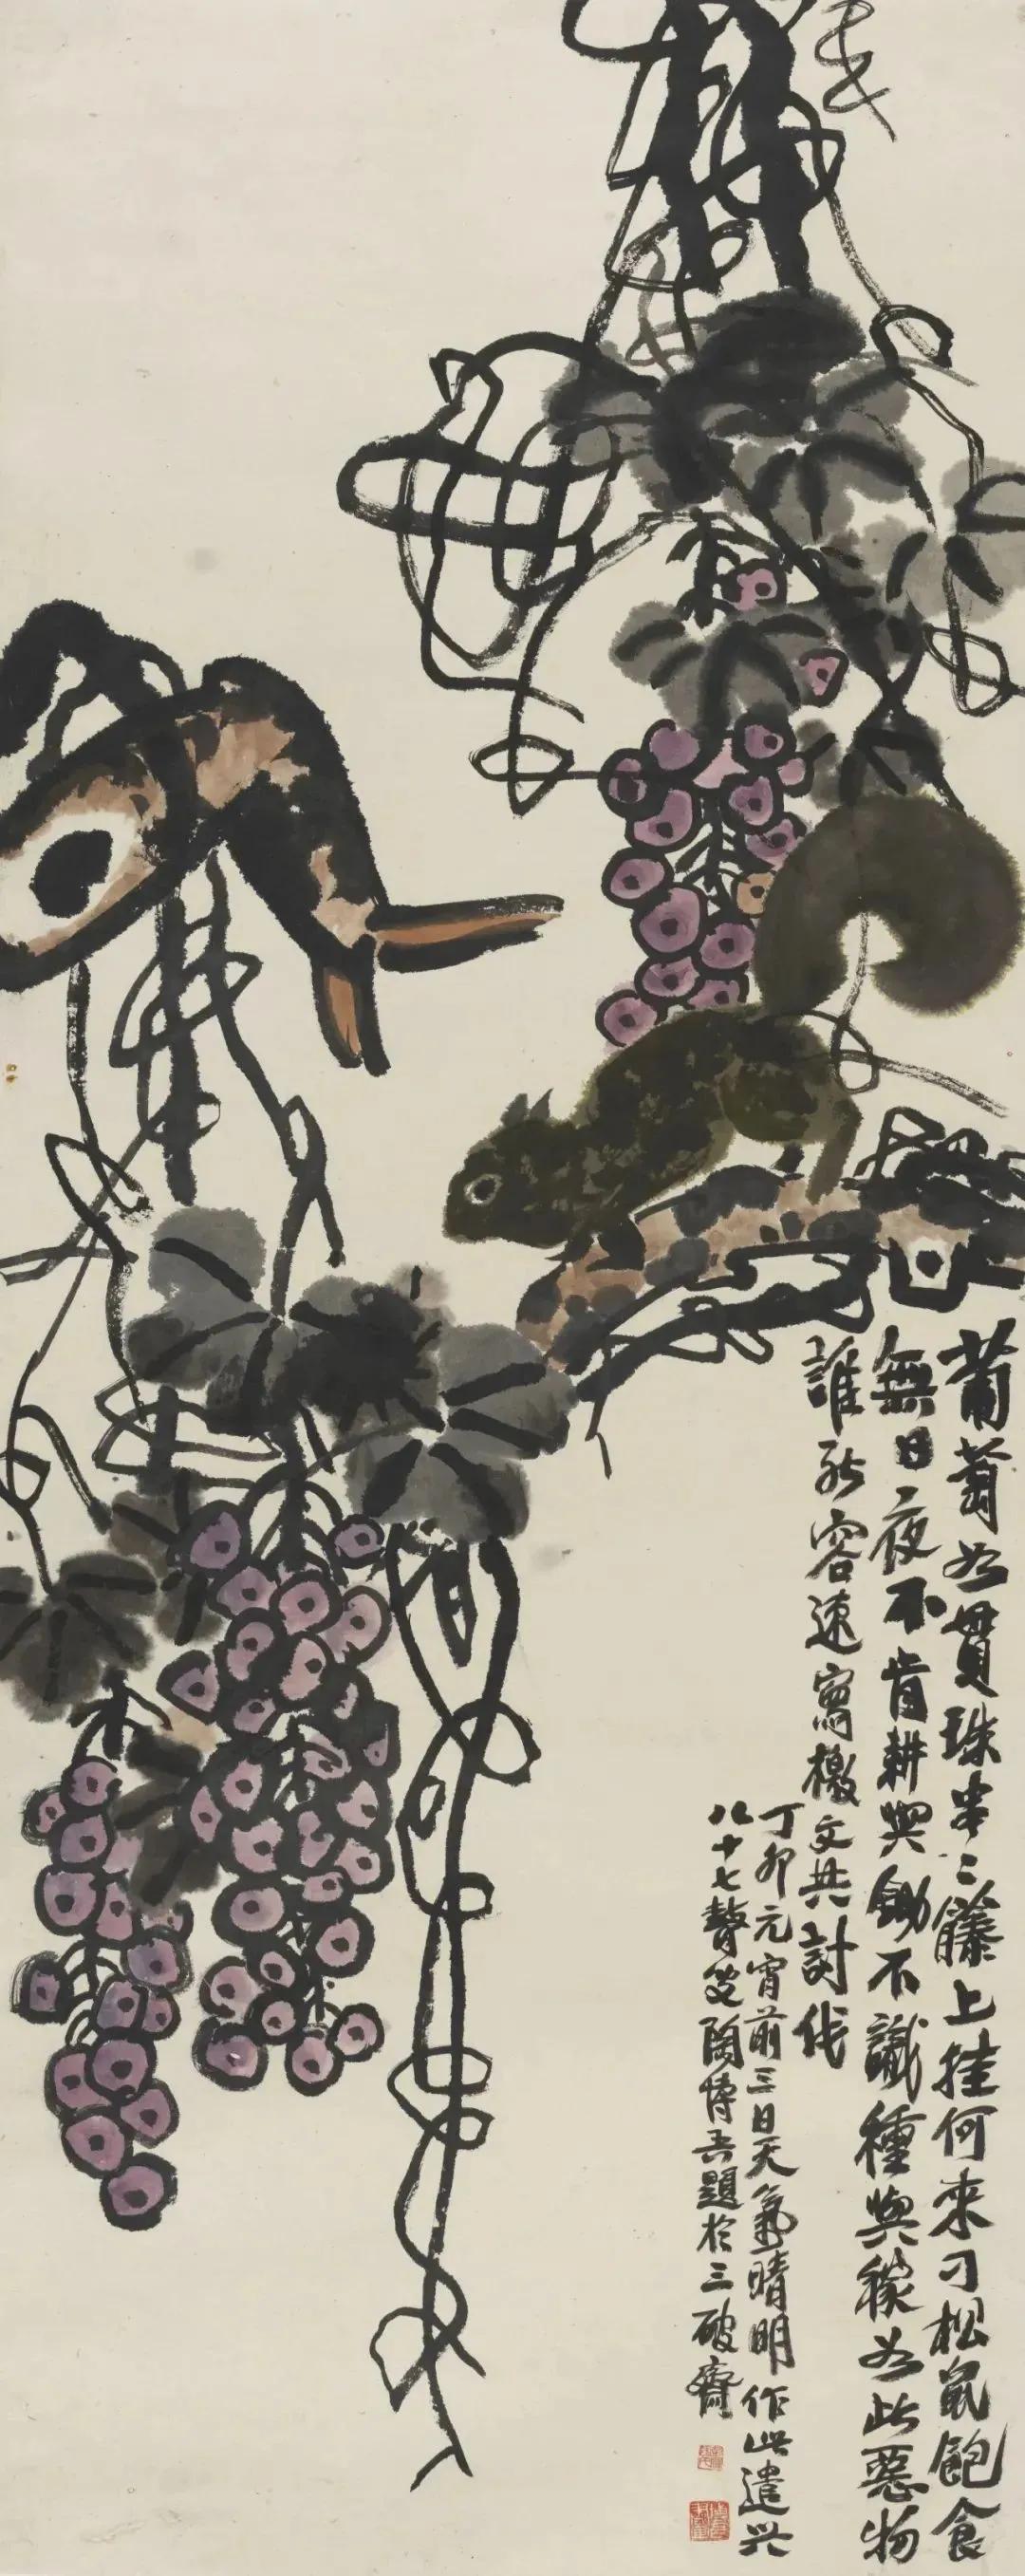 葡萄如貫珠串々藤上挂何来刁松鼠飽食
無日夜不肯耕與鋤不識種與稼如此惡物
誰能容速寫檄文共討伐
丁卯元宵前三日天氣晴明作此遣興
八十七聾叟陶博吾題於三破齋